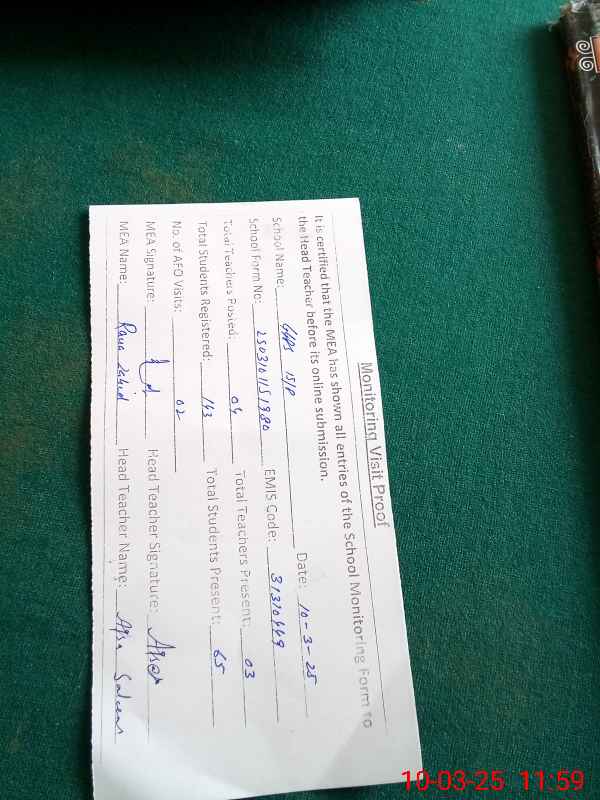 Monitoring Visit Proof
It is certified that the MEA has shown all entries of the School Monitoring Form to
the Head Teacher before its online submission.
School Name: GGPS 15/P Date: 10-3-25
School Form No: 2503101151980 EMIS Code: 31310449
Total Teachers Posted: 04 Total Teachers Present: 03
Total Students Registered: 143 Total Students Present: 65
No. of AFO Visits: 02
MEA Signature: Head Teacher Signature:
MEA Name: Rana Zahid Head Teacher Name: Afsa
10-03-25 11:59